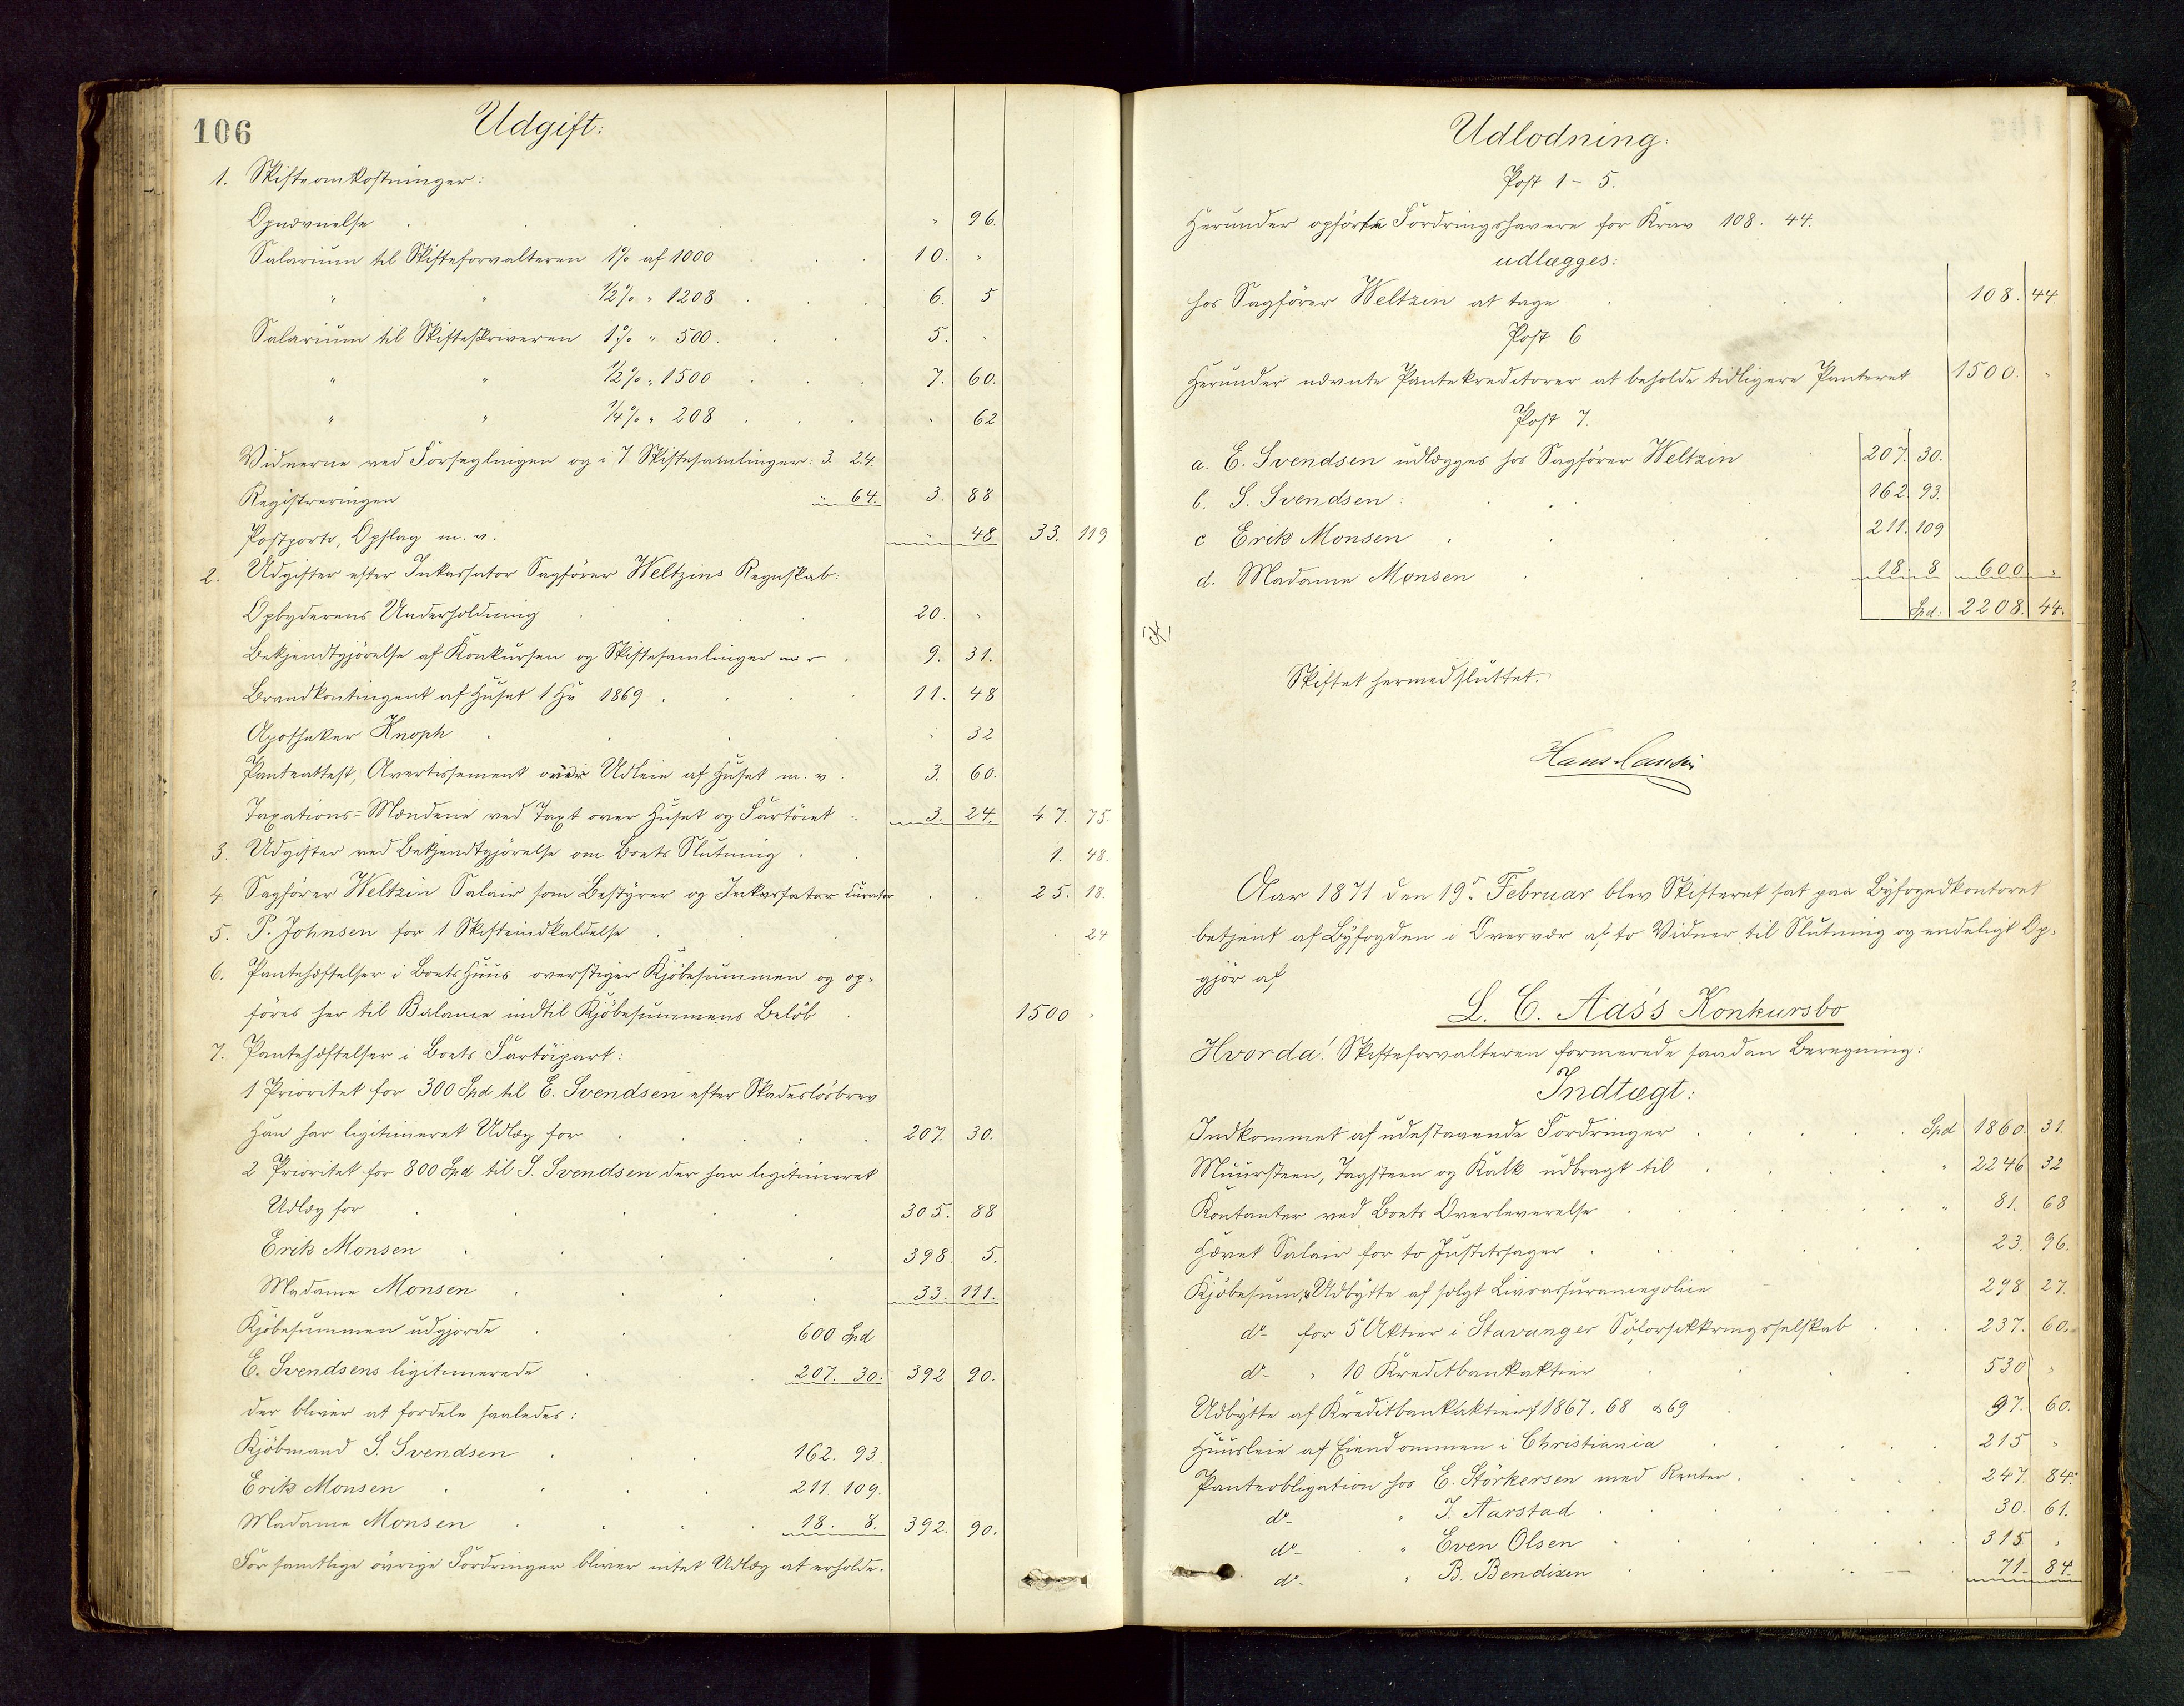 106
Udgift:
1. Skifteomkostninger:
Opnævnelse . . . . " 96.
Salarium til Skifteforvalteren 1% af 1000 . . . 10. "
" " 1/2% " 1208 . . . 6. 5
Salarium til Skifteskriveren 1% " 500. . . 5. "
" " 1/2% " 1500 . . . 7. 60.
" " 1/4% " 208 . . . " 62
Vidnerne ved Forseglingen og i 7 Skiftesamlinger: 3. 24.
Registreringen " 64. 3. 88
Postporto, Opslag m. v. " 48 33. 119.
2. Udgifter efter Inkassator Sagfører Weltzins Regnskab:
Opbyderens Underholdning . . . 20. "
Bekjendtgjörelse af Konkursen og Skiftesamlinger m v . 9. 31.
Brandkontingent af Huset 1 Hv 1869 . . . 11. 48
Apotheker Knoph . . . . " 32
Panteattest, Avertissement Udleie af Huset m. v. 3. 60.
Taxations=Mændene ved Taxt over Huset og Fartöiet . 3. 24. 47. 75.
3. Udgifter ved Bekjendtgjörelse om Boets Slutning . . 1. 48.
4. Sagfører Weltzin Salair som Bestyrer og Inkassator Curator . . 25. 18.
5. P. Johnsen for 1 Skifteindkaldelse . . . . 24
6. Pantehæftelser i Boets Huus overstiger Kjöbesummen og op-
föres her til Balance indtil Kjöbesummens Belöb . 1500 "
7. Pantehæftelser i Boets Fartöipart:
1 Prioritet for 300 Spd til E. Svendsen efter Skadeslösbrev
han har legitimeret Udlæg for . . . . 207. 30.
2 Prioritet for 800 Spd til S. Svendsen der har legitimeret
Udlæg for . . . . . 305. 88
Erik Monsen . . . . . 398 5.
Madame Monsen . . . . 33. 111.
Kjöbesummen udgjorde . . . 600 Spd
E. Svendsens legitimerede . . . 207. 30. 392 90.
der bliver at fordele saaledes:
Kjöbmand S. Svendsen . . . 162. 93.
Erik Monsen . . . . 211. 109.
Madame Monsen . . . . 18. 8. 392. 90.
For samtlige övrige Fordringer bliver intet Udlæg at erholde.
Udlodning:
Post 1 - 5.
Herunder opförte Fordringshavere for Krav 108. 44.
udlægges:
hos Sagfører Weltzin at tage . . . . 108. 44
Post 6
Herunder nævnte Pantekreditorer at beholde tidligere Panteret 1500. "
Post 7.
a. E. Svendsen udlægges hos Sagfører Weltzin 207. 30.
b. S. Svendsen: . . . 162. 93.
c Erik Monsen . . . . 211. 109
d. Madame Monsen . . . 18. 8 600 "
Spd. 2208. 44.
Skiftet hermed sluttet.
Aar 1871 den 19de Februar blev Skifteret sat paa Byfogedkontoret
betjent af Byfogden i Overvær af to Vidner til Slutning og endeligt Op-
gjör af
L. C. Aas's Konkursbo
Hvorda! Skifteforvalteren formerede saadan Beregning:
Indtægt:
Indkommet af udestaaende Fordringer . . . . Spd 1860. 31
Muursteen, Tagsteen og Kalk udbragt til . . . . " 2246 32
Kontanter ved Boets Overleverelse . . . . " 81. 68
Hævet Salair for to Justitssager . . . . 23. 96.
Kjöbesum, Udbytte af solgt Livsassurancepolice 298. 27.
do for 5 Aktier i Stavanger Söforsikkringsselskab . . . 237. 60.
do " 10 Kreditbankaktier . . . . 530 "
Udbytte af Kreditbankaktier f 1867. 68 & 69 . . 97. 60.
Huusleie af Eiendommen i Christiania . . . . 215 "
Panteobligation hos E. Störkersen med Renter . . . . 247. 84.
do " J. Aarstad . . . . 30. 61.
do " Even Olsen . . . . 315 "
do " B. Bendixen . . . . 71. 84.